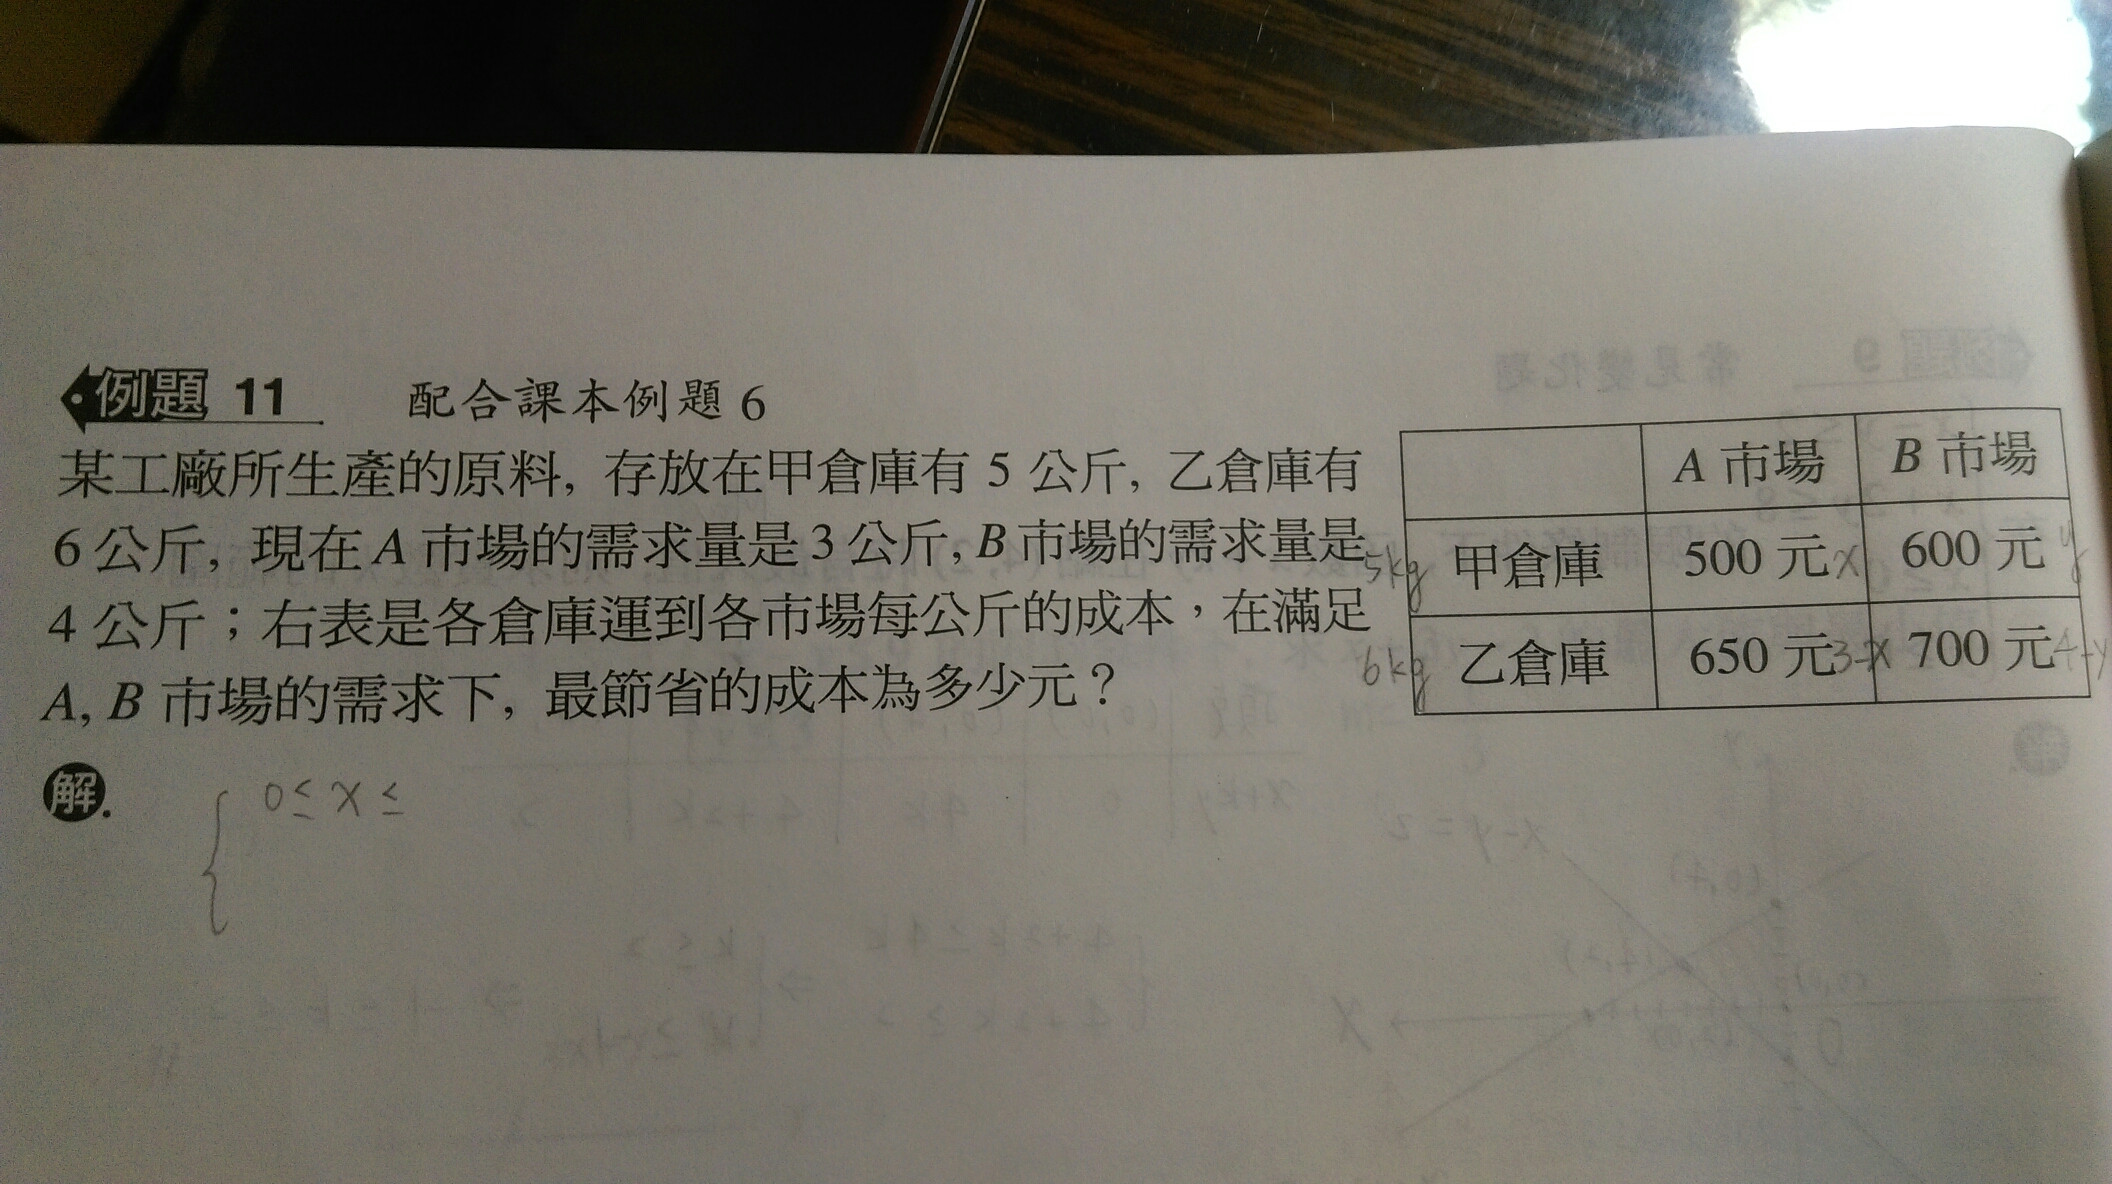 例題 11 配合課本例題 6
某工廠所生產的原料, 存放在甲倉庫有 5 公斤, 乙倉庫有
6 公斤, 現在 A 市場的需求量是 3 公斤, B 市場的需求量是
4 公斤；右表是各倉庫運到各市場每公斤的成本，在滿足
A, B 市場的需求下, 最節省的成本為多少元？
A 市場 B 市場
5kg 甲倉庫 500 元 x 600 元 y
6kg 乙倉庫 650 元 3-x 700 元 4-y
解.
{ 0 ≤ x ≤